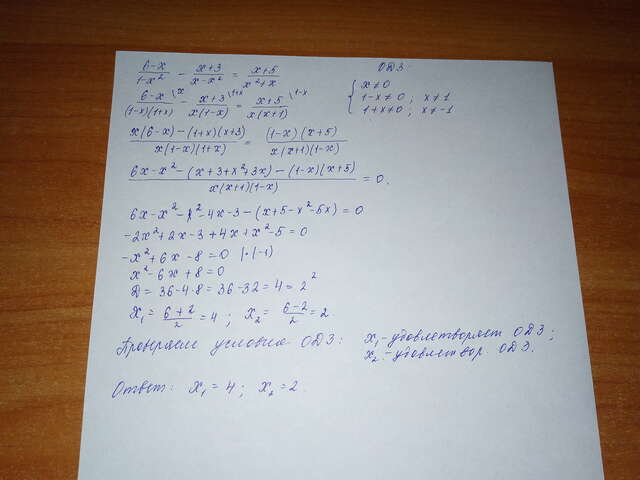 6-x/1-x² - x+3/x-x² = x+5/x²+x
ОДЗ:
6-x\x/(1-x)(1+x) - x+3\1+x/x(1-x) = x+5\1-x/x(x+1)
{ x≠0
1-x≠0; x≠1
1+x≠0; x≠-1
x(6-x)-(1+x)(x+3)/x(1-x)(1+x) = (1-x)(x+5)/x(x+1)(1-x)
6x-x²-(x+3+x²+3x)-(1-x)(x+5)/x(x+1)(1-x) = 0.
6x-x²-x²-4x-3-(x+5-x²-5x)=0
-2x²+2x-3+4x+x²-5=0
-x²+6x-8=0 |·(-1)
x²-6x+8=0
D=36-4·8=36-32=4=2²
x₁=6+2/2=4; x₂=6-2/2=2.
Проверяем условия ОДЗ: x₁-удовлетворяет ОДЗ;
x₂-удовлетвор. ОДЗ.
Ответ: x₁=4; x₂=2.